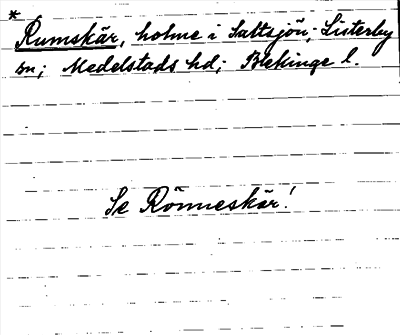 *
Rumskär, holme i Saltsjön; Listerby
sn; Medelstads hd; Blekinge l.
Se Rönneskär!